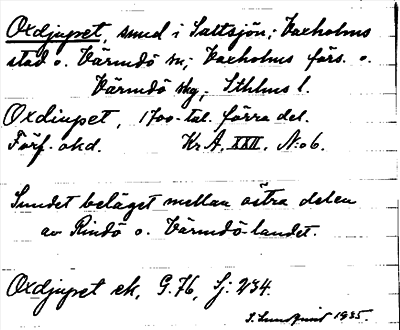 Oxdjupet, sund i Saltsjön; Vaxholms
stad o. Värmdö sn; Vaxholms förs. o.
Värmdö skg, Sthlms l.
Oxdiupet, 1700-tal. förra del.
Förf. okd. Kr A, XXII, N:o 6.
Sundet beläget mellan östra delen
av Rindö o. Värmdö-landet.
Oxdjupet ek, G. 76, Sj: 234.
1935.